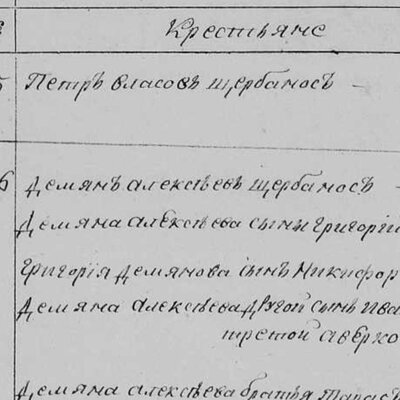 Крестьяне
5 Петръ Власовъ Щербаносъ —
6 Демянъ Алексѣевъ Щербаносъ
Демяна Алексѣева сынъ Григорій
Григорія Демянова сынъ Никифор
Демяна Алексѣева другой сынъ Ива
третой Аверко
Демяна Алексѣева братья Тарас